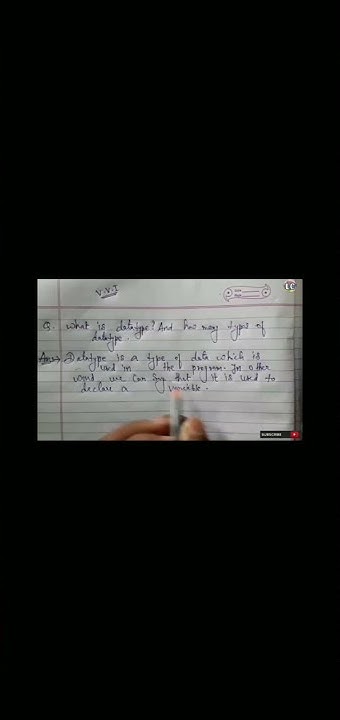 V.V.I
Q. What is datatype? And how many types of
datatype.
Ans:→ Datatype is a type of data which is
used in the program. In other
word we can say that it is used to
declare a variable.
SUBSCRIBE